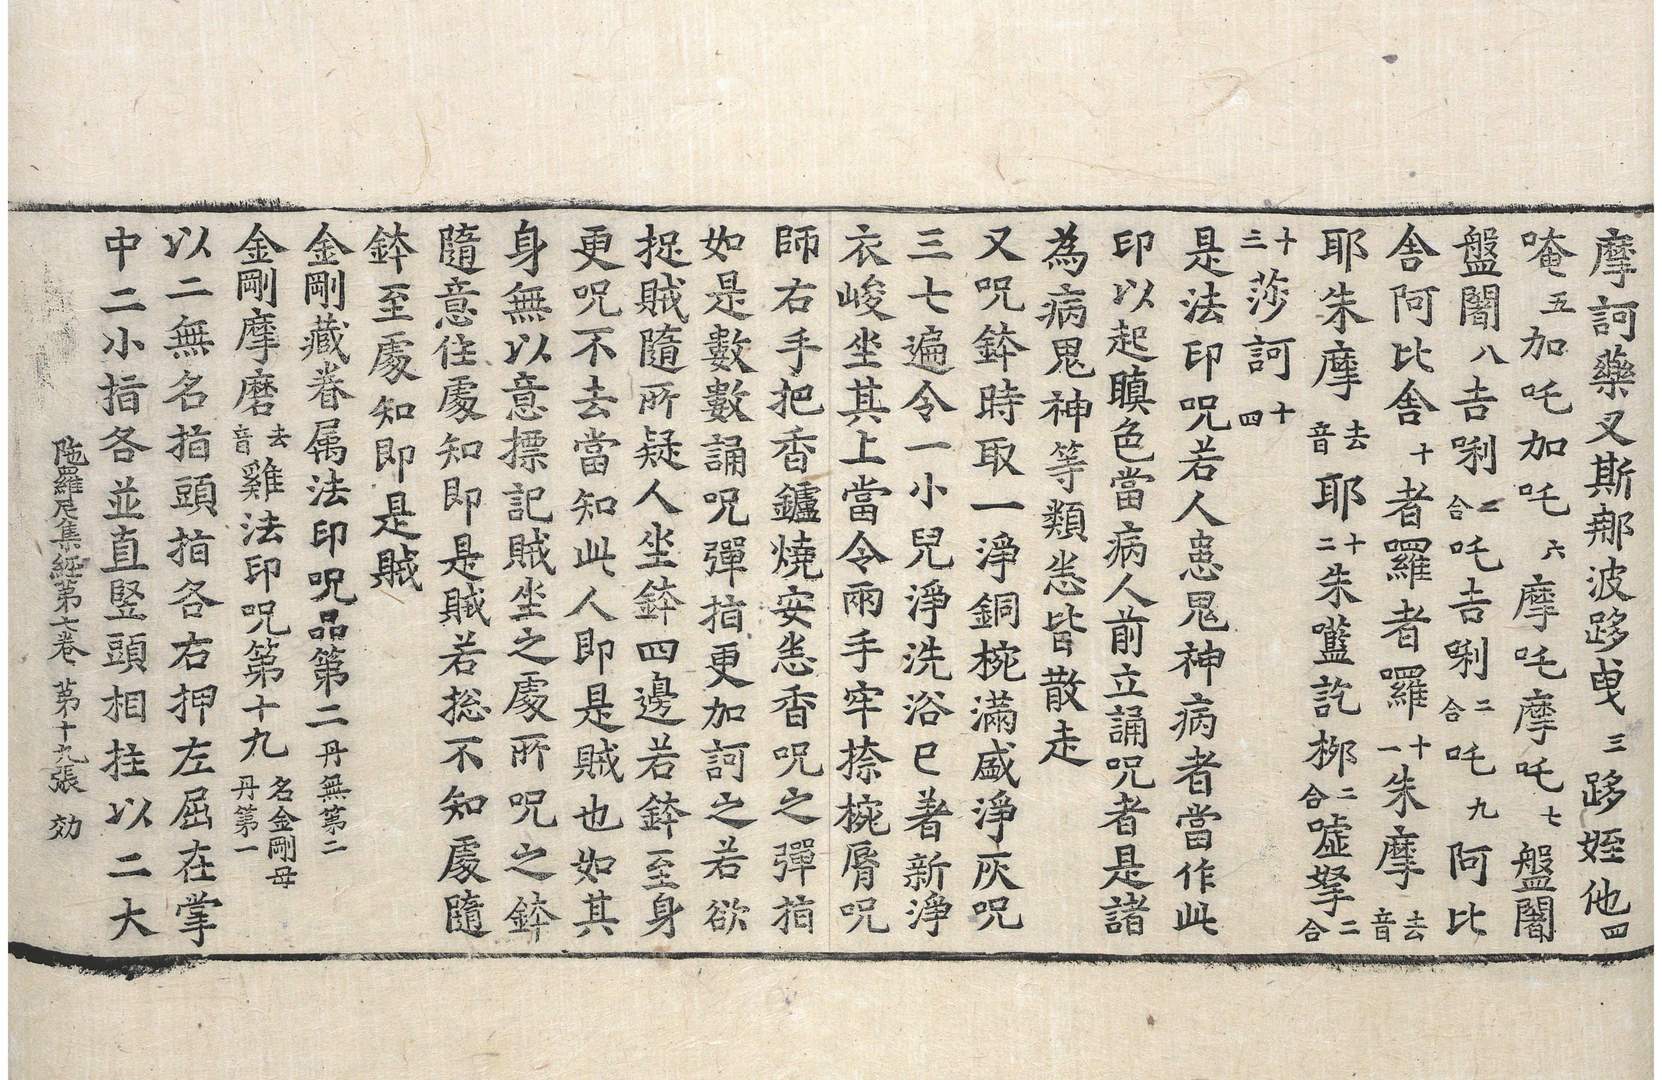 摩訶藥叉斯那波跢曳三跢姪他四
唵五加吒加吒六摩吒摩吒七盤闍
盤闍八吉唎二合吒吉唎二合吒九阿比
舍阿比舍十者羅者羅十一朱摩去音
耶朱摩去音耶十二朱㘕訖栁二合嘘拏二合
十三莎訶十四
是法印呪若人患鬼神病者當作此
印以起瞋色當病人前立誦呪者是諸
為病鬼神等類悉皆散走
又呪鉢時取一淨銅椀滿盛淨灰呪
三七遍令一小兒淨洗浴已著新淨
衣峻坐其上當令兩手牢捺椀脣呪
師右手把香鑪燒安悉香呪之彈指
如是數數誦呪彈指更加訶之若欲
捉賊隨所疑人坐鉢四邊若鉢至身
更呪不去當知此人即是賊也如其
身無以意摽記賊坐之處所呪之鉢
隨意住處知即是賊若捴不知處隨
鉢至處知即是賊
金剛藏眷属法印呪品第二丹無第二
金剛摩磨去音雞法印呪第十九名金剛母丹第一
以二無名指頭指各右押左屈在掌
中二小指各並直竪頭相拄以二大
陁羅尼集經第七卷 第十九張 効